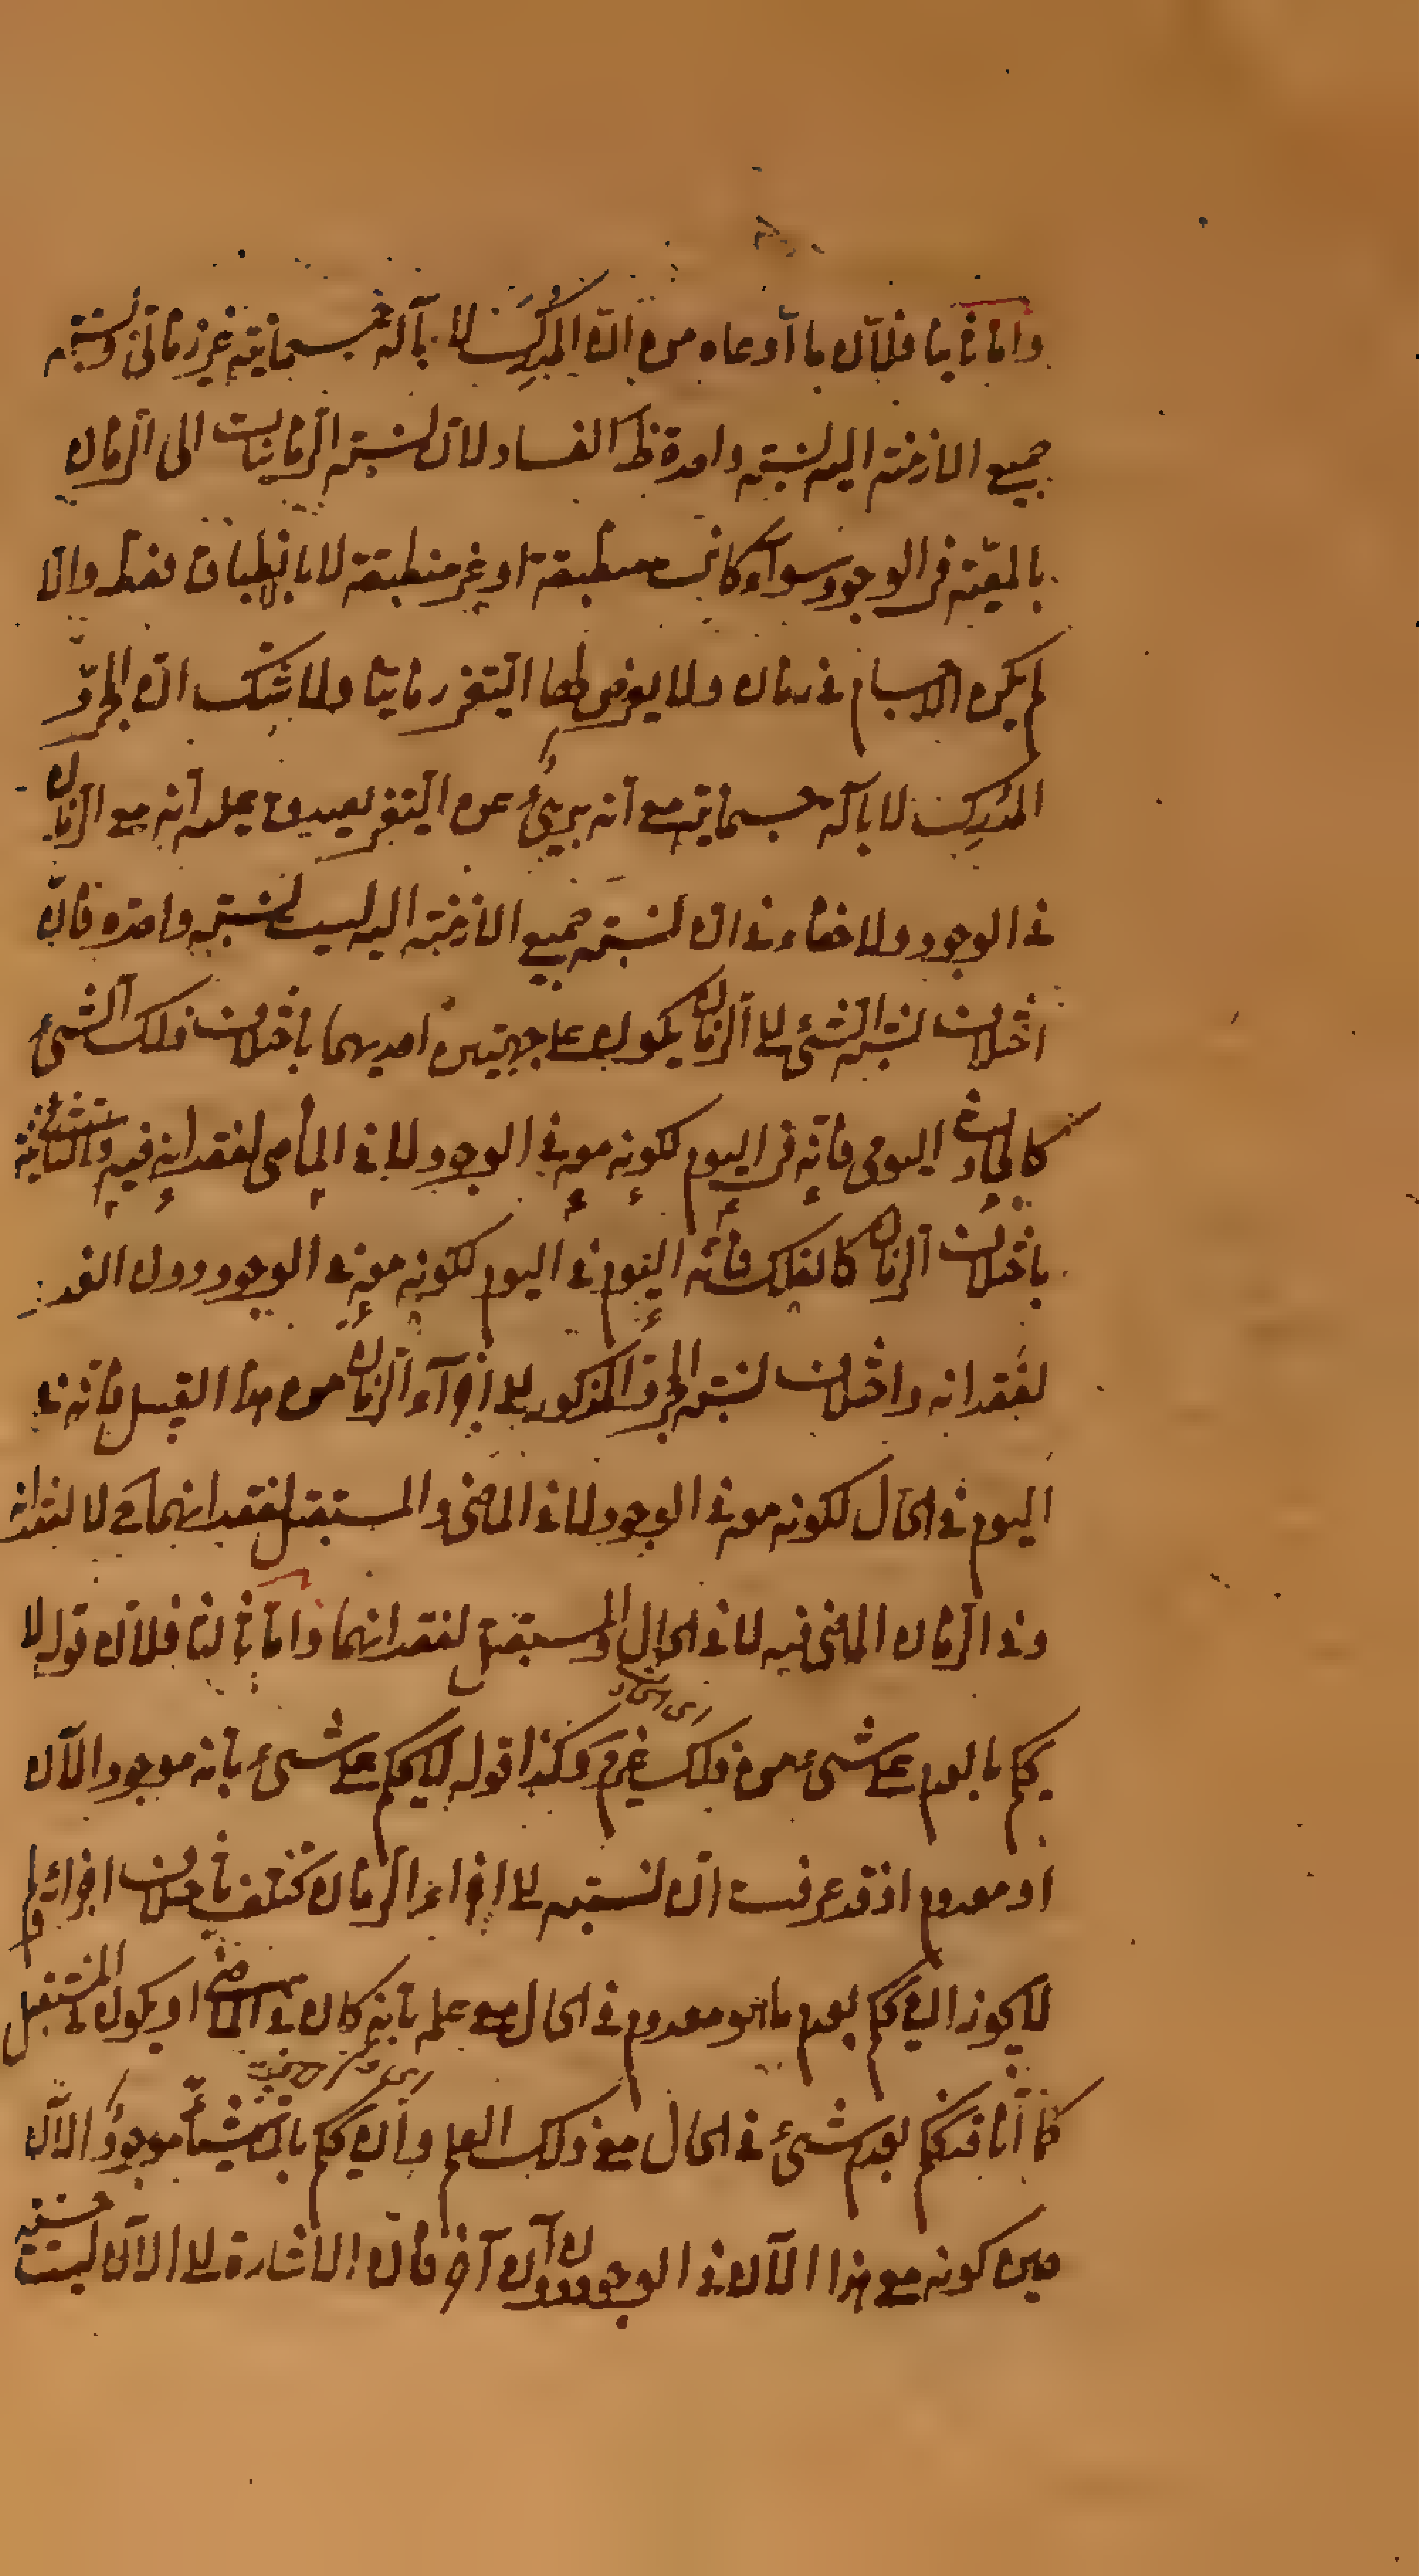 واما ثانيا فلان ما ادعاه من ان المدرك لا بآلة جسمانية غير زماني ونسبة
جميع الازمنة اليه نسبة واحدة ظ الفساد لان نسبة الزمانيات الى الزمان
بالمعية في الوجود سواء كانت منطبقة او غير منطبقة لا بانطباق فقط والا
لم يكن الاجسام في زمان ولا يعرض لها التغير زمانيا ولا شك ان المجرد
المدرك لا بآلة جسمانية مع انه بريئ عن التغير يصدق عليه انه مع الزمان
في الوجود ولا خفاء في ان نسبة جميع الازمنة اليه ليست نسبة واحدة فان
اختلاف نسبة الشئ الى الزمان يكون على جهتين احديهما باختلاف ذلك الشئ
كالحادث اليومي فانه في اليوم لكونه معه في الوجود لا في الماضي لفقدانه فيه والثانية
باختلاف الزمان كالفلك فانه اليوم في اليوم لكونه معه في الوجود دون الغد
لفقدانه واختلاف نسبة المجرد المذكور الى اجزاء الزمان من هذا القبيل فانه في
اليوم في الحال لكونه معه في الوجود لا في الماضي والمستقبل لفقدانهما لا لفقدانه
وفي الزمان الماضي فيه لا في الحال والمستقبل لفقدانهما واما ثالثا فلان قوله لا
يحكم بالعدم على شئ من ذلك غير م وكذا قوله لا يحكم على شئ بانه موجود الآن
او معدوم اذ قد عرفت ان نسبته الى اجزاء الزمان تختلف باختلاف اجزائه فلم
لا يجوز ان يحكم بعدم ما هو معدوم في الحال مع علمه بانه كان في الماضي او يكون في المستقبل
كما انا قد نحكم بعدم شئ في الحال مع ذلك العلم وان يحكم بان شيئا موجود الآن
حين كونه مع هذا الآن في الوجود دون آن آخر فان الاشارة الى الآن ليست حسية